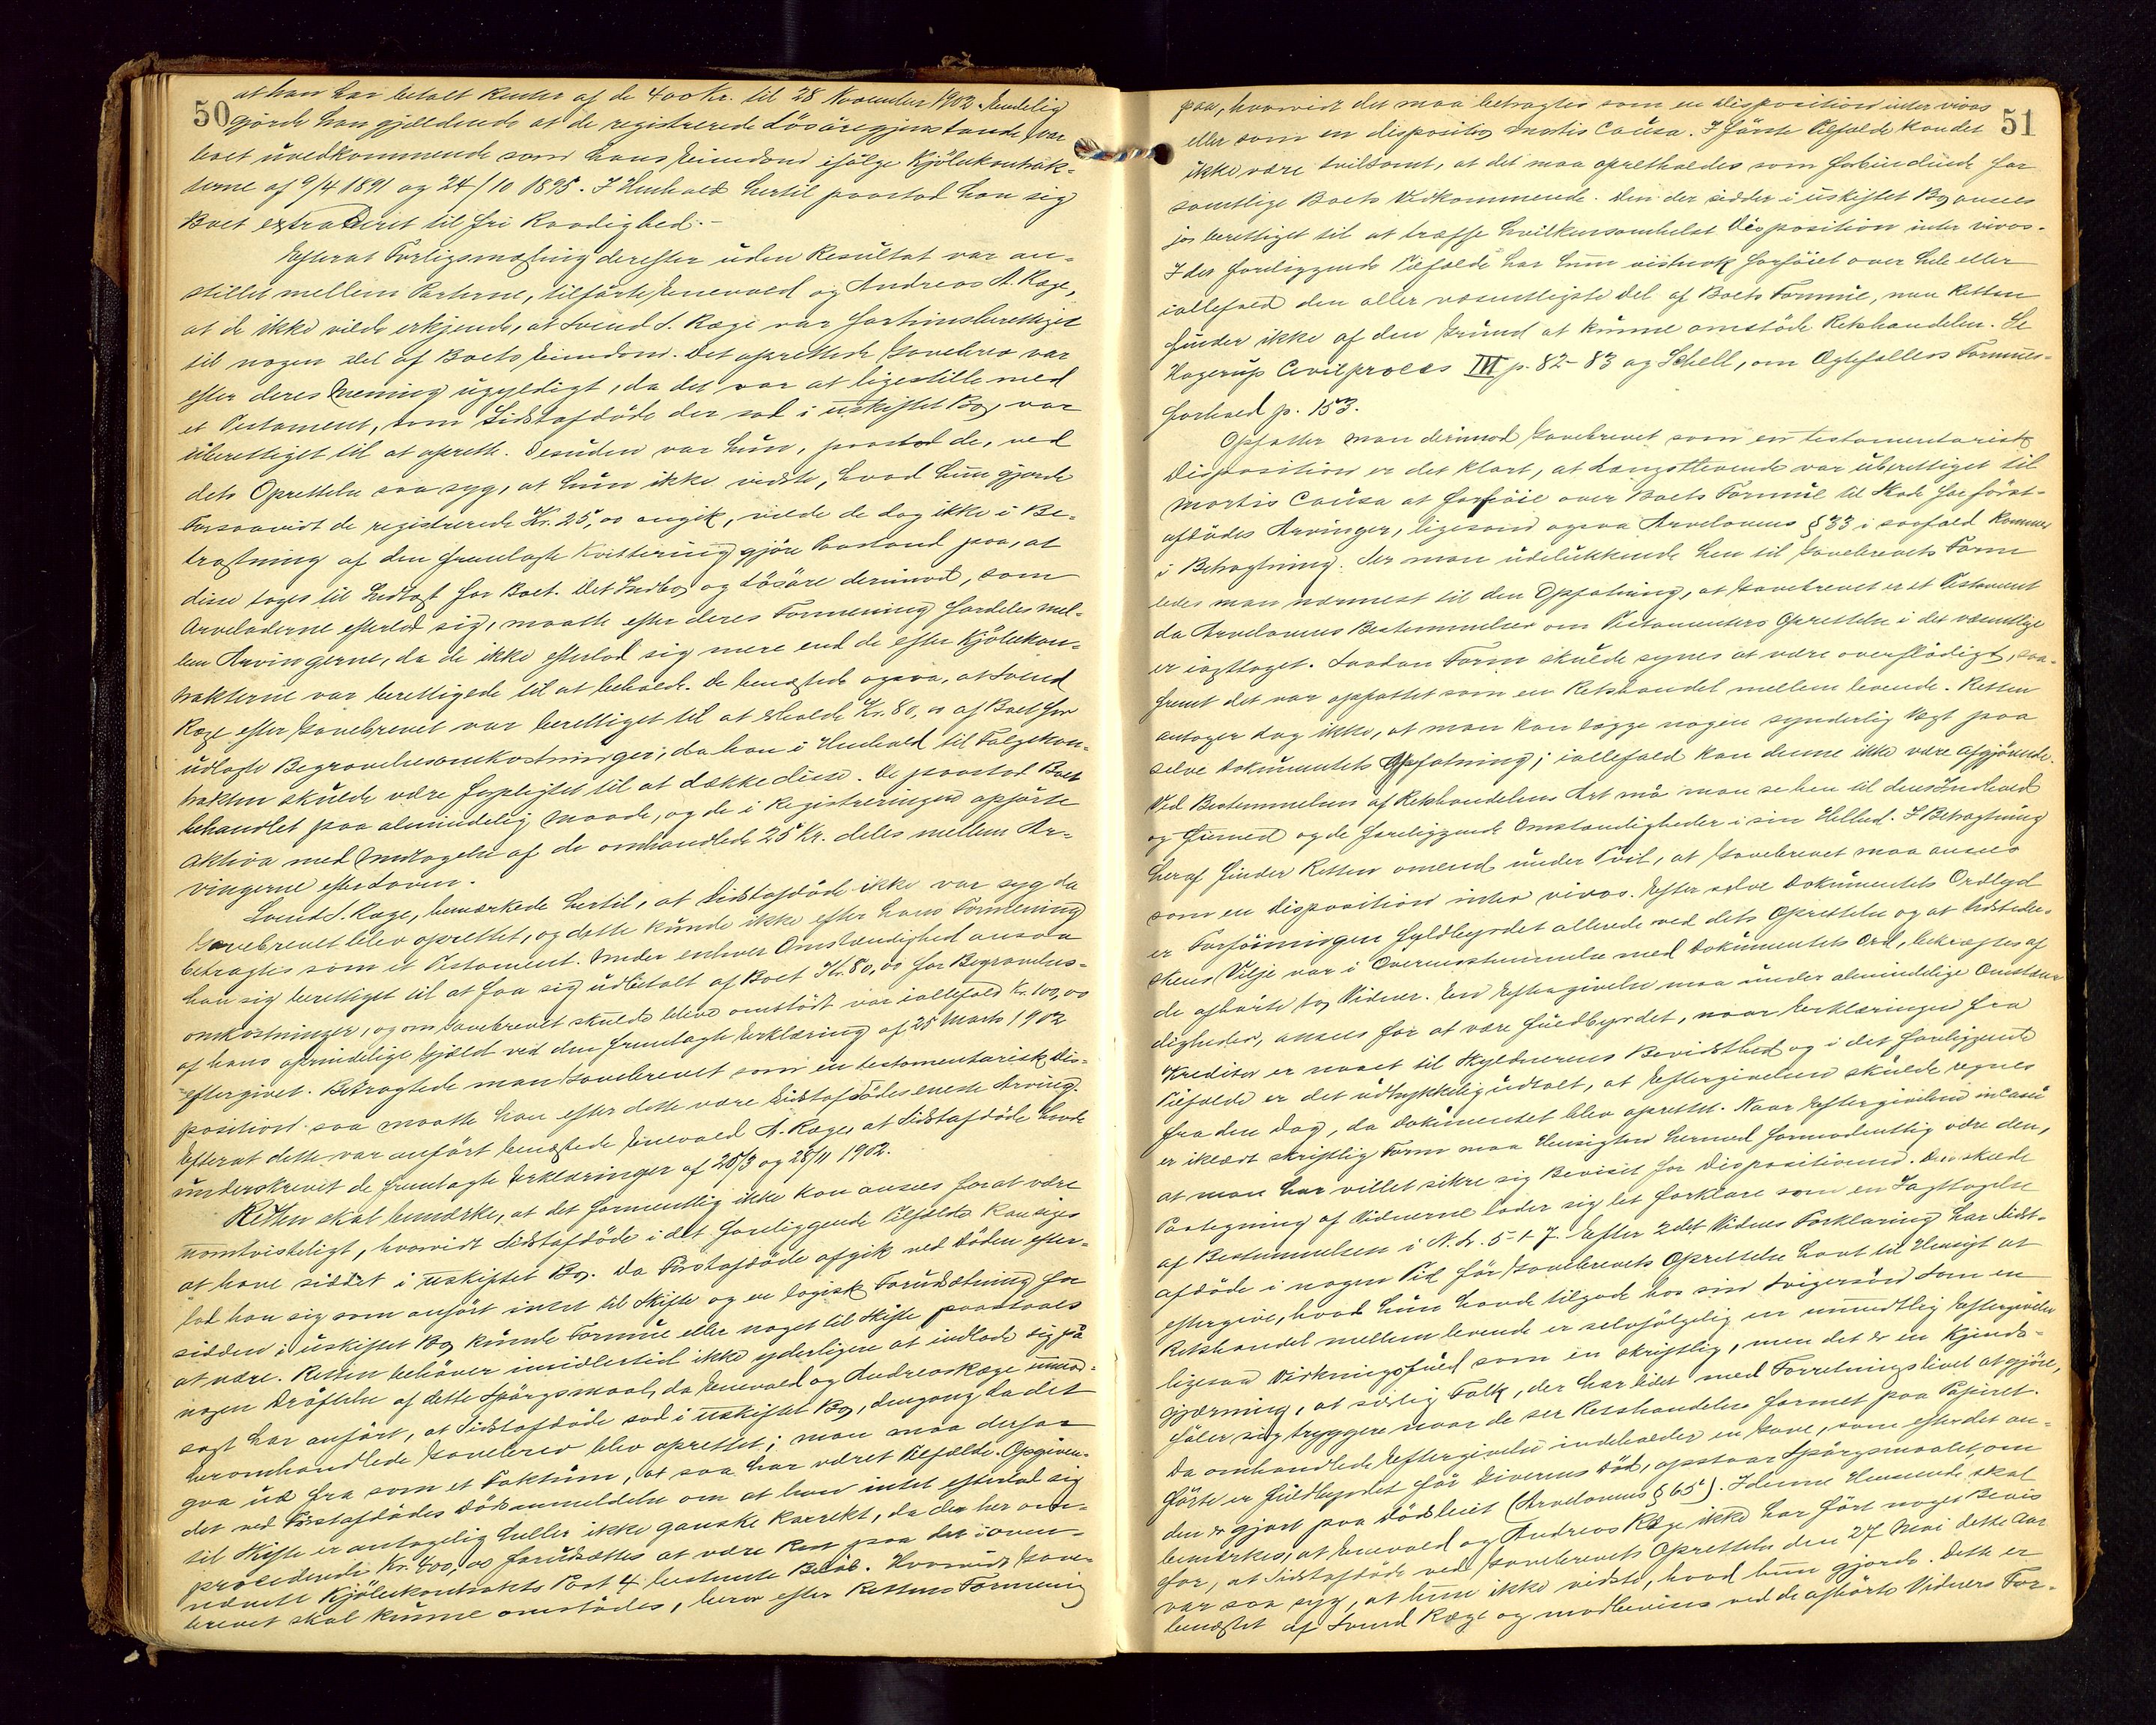 50
at han har betalt Renter af de 400 Kr. til 28 November 1902. Endelig
gjorde han gjældende at de registrerede Lösöregjenstande var
boet uvedkommende som hans Eiendom ifölge Kjöbekontrak-
terne af 9/4 1891 og 24/10 1895. I Henhold hertil paastod han sig
Boet extraderet til fri Raadighed.-
Efterat Forligsmægling derefter uden Resultat var an-
stillet mellem Parterne, tilförte Enevald og Andreas A. Ræge,
at de ikke vilde erkjende, at Svend S. Ræge var fortrinsberettiget
til nogen Del af Boets Eiendom. Det oprettede Gavebrev var
efter deres Mening ugyldigt, da det var at ligestille med
et Testament, som Sidstafdöde der sad i uskiftet Bo, var
uberettiget til at oprette. Desuden var hun, paastod de, ved
dets Oprettelse saa syg, at hun ikke vidste, hvad hun gjorde
Forsaavidt de registrerede Kr. 25,00 angik, vilde de dog ikke i Be-
tragtning af den fremlagte Kvittering gjöre Paastand paa, at
disse toges til Indtægt for Boet. Det Indbo og Lösöre derimod, som
Arveladerne efterlod sig, maatte efter deres Formening fordeles mel-
lem Arvingerne, da de ikke efterlod sig mere end de efter Kjöbekon-
trakterne var berettigede til at beholde. De benægtede ogsaa, at Svend
Ræge efter Gavebrevet var berettiget til at erholde Kr. 80,00 af Boet for
udlagte Begravelsesomkostninger, da han i Henhold til Folgekon-
trakten skulde være forpligtet til at dække disse. De paastod Boet
behandlet paa almindelig Maade, og de i Registreringen opförte
Aktiva med Undtagelse af de omhandlede 25 Kr. deles mellem Ar-
vingerne efter Loven.
Svend S. Ræge, bemærkede hertil, at Sidstafdöde ikke var syg da
Gavebrevet blev oprettet, og dette kunde ikke efter hans Formening
betragtes som et Testament. Under enhver Omstændighed ansaa
han sig berettiget til at faa sig udbetalt af Boet Kr. 80,00 for Begravelses-
omkostninger, og om Gavebrevet skulde blive omstödt var iallefald Kr. 100,00
af hans oprindelige Gjæld ved den fremlagte Erklæring af 25 Marts 1902
eftergivet. Betragtede man Gavebrevet som en testamentarisk Dis-
position saa maatte han efter dette være Sidstafdödes eneste Arving.
Efterat dette var anfört benægtede Enevald A. Ræge, at Sidstafdöde havde
underskrevet de fremlagte Erklæringer af 25/3 og 28/11 1902.
Retten skal bemærke, at det formentlig ikke kan ansees for at være
uomtvisteligt, hvorvidt Sidstafdöde i det foreliggende Tilfælde kan siges
at have siddet i uskiftet Bo. Da Förstafdöde afgik ved Döden efter-
lod han sig som anfört intet til Skifte og en logisk Forudsætning for
sidden i uskiftet Bo kunde Formue eller noget til Skifte paastaaes
at være. Retten behöver imidlertid ikke yderligere at indlade sig på
nogen Dröftelse af dette Spörgsmaal, da Enevald og Andreas Ræge
sagt har anfört, at Sidstafdöde sad i uskiftet Bo, dengang da det
heromhandlede Gavebrev blev oprettet; man maa derfor
gaa ud fra som et Faktum, at saa har været Tilfælde. Opgiven-
det ved Förstafdödes Dödsanmeldelse om at han intet efterlod sig
til Skifte er antagelig heller ikke ganske korrekt, da den her om-
procederede Kr. 400,00 forudsættes at være Rest paa det i oven-
nævnte Kjöbekontrakts Post 4 bestemte Belöb. Hvorvidt Gave-
brevet skal kunne omstödes, beror efter Rettens Formening
51
paa, hvorvidt det maa betragtes som en Disposition inter vivos
eller som en dispositio mortis causa. I förste Tilfælde kan det
ikke være tvilsomt, at det maa opretholdes som forbindende for
samtlige Boets Vedkommende. Den der sidder i uskiftet Bo ansees
jo berettiget til at træffe hvilkensomhelst Disposition inter vivos.
I det foreliggende Tilfælde har hun vistnok forföiet over hele eller
iallefald den aller væsentligste Del af Boets Formue, men Retten
finder ikke af den Grund at kunne omstöde Retshandelen. Se
Hagerup Civilproces III p. 82-83 og Schell, om Ægtefællers Formues-
forhold p. 153.
Opfatter man derimod Gavebrevet som en testamentarisk
Disposition er det klart, at Længstlevende var uberettiget til
mortis causa at forföie over Boets Formue til Skade for först-
afdödes Arvinger, ligesom ogsaa Arvelovens § 33 i saafald kommer
i Betragtning. Ser man udelukkende hen til Gavebrevets Form
ledes man nærmest til den Opfatning, at Gavebrevet er et Testament
da Arvelovens Bestemmelser om Testamenters Oprettelse i det væsentlige
er iagttaget. Saadan Form skulde synes at være overflödigt, saa-
fremt det var opfattet som en Retshandel mellem levende. Retten
antager dog ikke, at man kan lægge nogen synderlig Vægt paa
selve Dokumentets Opfatning; iallefald kan denne ikke være afgjörende.
Ved Bestemmelsen af Retshandelens Art må man se hen til dens Indhold
og Öiemed og de foreliggende Omstændigheder i sin Helhed. I Betragtning
heraf finder Retten omend under Tvil, at Gavebrevet maa ansees
som en Disposition inter vivos. Efter selve Dokumentets Ordlyd
er Forföiningen fuldbyrdet allerede ved dets Oprettelse og at Udsteder-
skens Vilje var i Overensstemmelse med Dokumentets Ord, bekræftes af
de afhörte to Vidner. En Eftergivelse maa under almindelige Omstæn-
digheder, ansees for at være fuldbyrdet, naar Erklæringen fra
Kreditor er naaet til Skyldnerens Bevidsthed og i det foreliggende
Tilfælde er det udtrykkelig udtalt, at Eftergivelsen skulde regnes
fra den Dag, da Dokumentet blev oprettet. Naar Eftergivelsen in casu
er iklædt skriftlig Form maa Hensigten hermed formodentlig være den,
at man har villet sikre sig Beviset for Dispositionen. Den skede
Paategning af Vidnerne lader sig let forklare som en Iagttagelse
af Bestemmelsen i N. L. 5-1-7. Efter 2det Vidnes Forklaring har Sidst-
afdöde i nogen Tid för Gavebrevets Oprettelse havt til Hensigt at
eftergive, hvad hun havde tilgode hos sin Svigersön. Som en
Retshandel mellem levende er selvfölgelig en mundtlig Eftergivelse
ligesaa virkningsfuld som en skriftlig, men det er en Kjends-
gjærning, at særlig Folk, der har lidet med Forretningslivet at gjöre,
föler sig tryggere naar de ser Retshandelen formet paa Papiret.
Da omhandlede Eftergivelse indeholder en Gave, som efter det an-
förte er fuldbyrdet för Giverens Död, opstaar Spörgsmaalet, om
den er gjort paa Dödsleiet (Arvelovens § 65). I denne Henseende skal
bemærkes, at Enevald og Andreas Ræge ikke har fört noget Bevis
for, at Sidstafdöde ved Gavebrevets Oprettelse den 27 Mai dette Aar
var saa syg, at hun ikke vidste, hvad hun gjorde. Dette er
benægtet af Svend Ræge og modbevises ved de afhörte Vidners For-